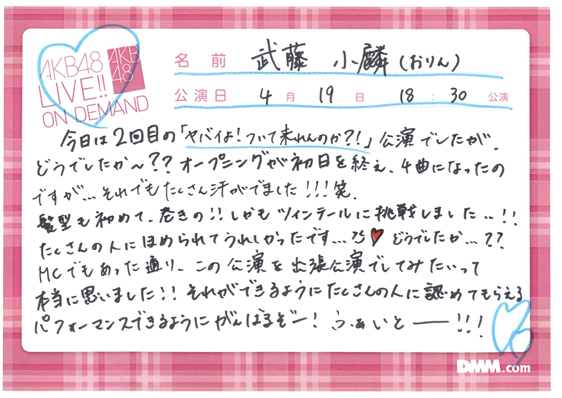 AKB48
LIVE!!
ON DEMAND
AKB
48
名前 武藤 小麟(おりん)
公演日 4月 19日 18:30公演
今日は2回目の「ヤバイよ!ついて来れんのか?!」公演でしたが、
どうでしたか〜??オープニングが初日を終え、4曲になったの
ですが…それでもたくさん汗がでました!!!笑
髪型も初めて、巻きの!!しかもツインテールに挑戦しました…!!
たくさんの人にほめられてうれしかったです…♥どうでしたか…??
MCでもあった通り、この公演を出張公演でしてみたいって
本当に思いました!!それができるようにたくさんの人に認めてもらえる
パフォーマンスできるようにがんばるぞー!ふぁいとー!!!
DMM.com